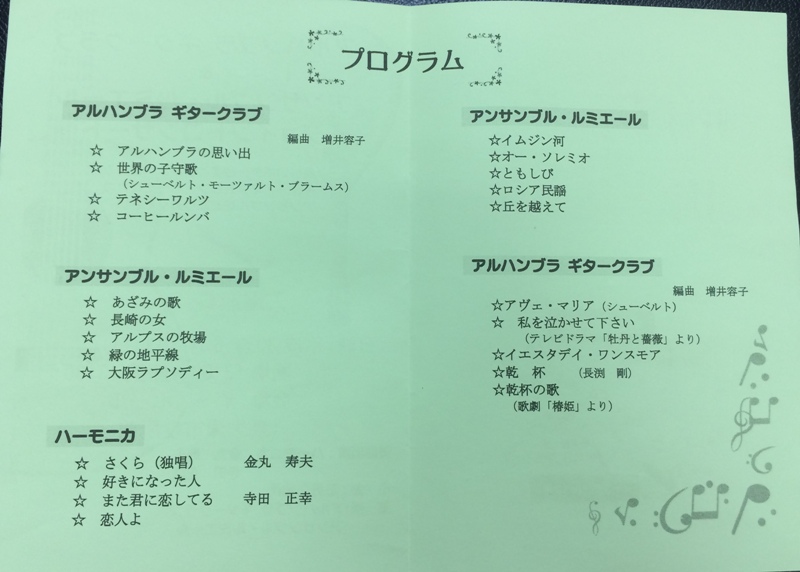 プログラム
アルハンブラ ギタークラブ
編曲 増井容子
☆ アルハンブラの思い出
☆ 世界の子守歌
(シューベルト・モーツァルト・ブラームス)
☆ テネシーワルツ
☆ コーヒールンバ
アンサンブル・ルミエール
☆ あざみの歌
☆ 長崎の女
☆ アルプスの牧場
☆ 緑の地平線
☆ 大阪ラプソディー
ハーモニカ
☆ さくら(独唱) 金丸 寿夫
☆ 好きになった人
☆ また君に恋してる 寺田 正幸
☆ 恋人よ
アンサンブル・ルミエール
☆イムジン河
☆オー・ソレミオ
☆ともしび
☆ロシア民謡
☆丘を越えて
アルハンブラ ギタークラブ
編曲 増井容子
☆アヴェ・マリア(シューベルト)
☆ 私を泣かせて下さい
(テレビドラマ「牡丹と薔薇」より)
☆イエスタデイ・ワンスモア
☆乾 杯 (長渕 剛)
☆乾杯の歌
(歌劇「椿姫」より)